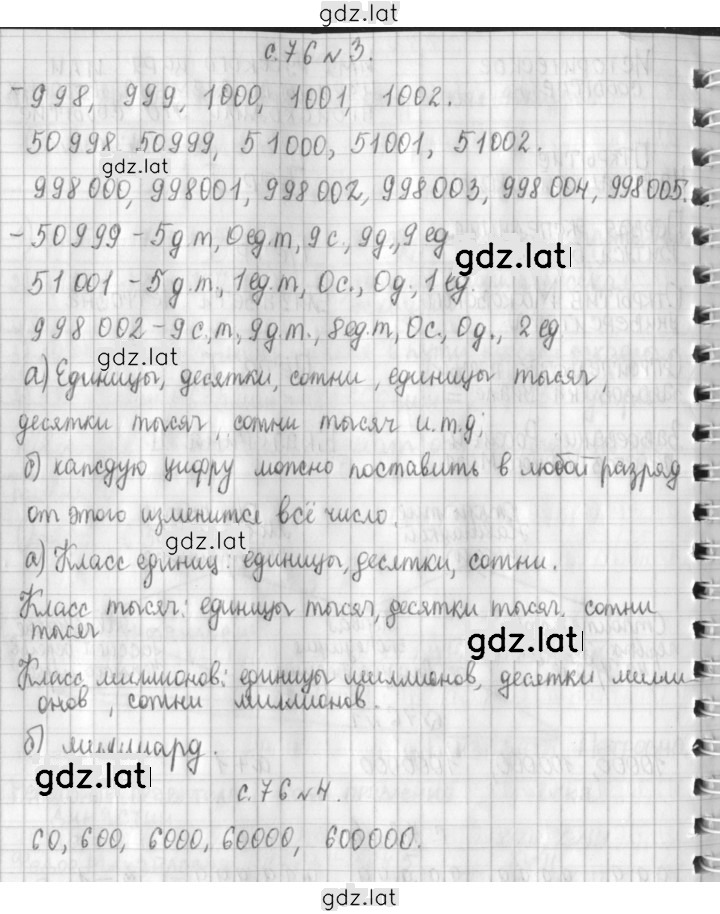 gdz.lat
с.76 №3.
-998, 999, 1000, 1001, 1002.
50998 50999, 51000, 51001, 51002.
gdz.lat
998000, 998001, 998002, 998003, 998004, 998005.
-50999 - 5д.т, 0ед.т, 9с., 9д., 9 ед
gdz.lat
51001 - 5д.т., 1ед.т, 0с., 0д., 1 ед.
998 002 - 9с,т, 9д.т., 8ед.т, 0с., 0д., 2 ед
gdz.lat
а) Единицы, десятки, сотни, единицы тысяч,
десятки тысяч, сотни тысяч и.т.д;
б) каждую цифру можно поставить в любой разряд
от этого изменится всё число.
gdz.lat
а) Класс единиц: единицы, десятки, сотни.
Класс тысяч: единицы тысяч, десятки тысяч. сотни
тысяч
gdz.lat
Класс миллионов: единицы миллионов, десятки милли-
онов, сотни миллионов.
б) миллиард.
gdz.lat
с.76 №4.
60, 600, 6000, 60000, 600000.
gdz.lat